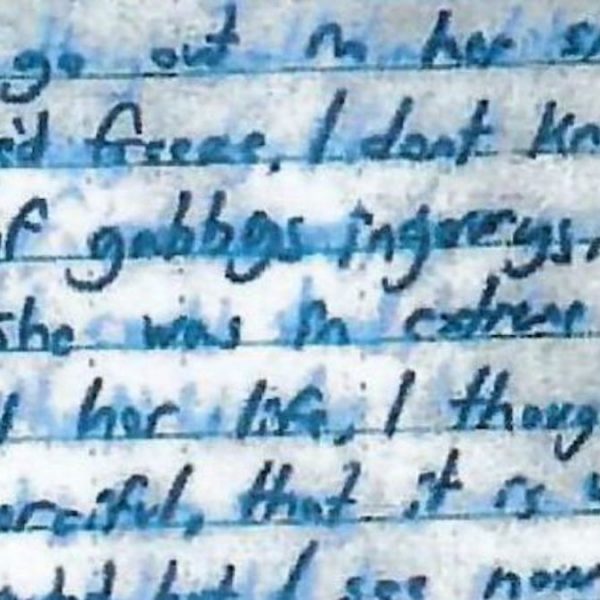 go out in her s
e'd freeze, I dont Kn
of gabbys ingerys.
she was in extreme
her life, I thoug
erciful, that it is u
but I see now